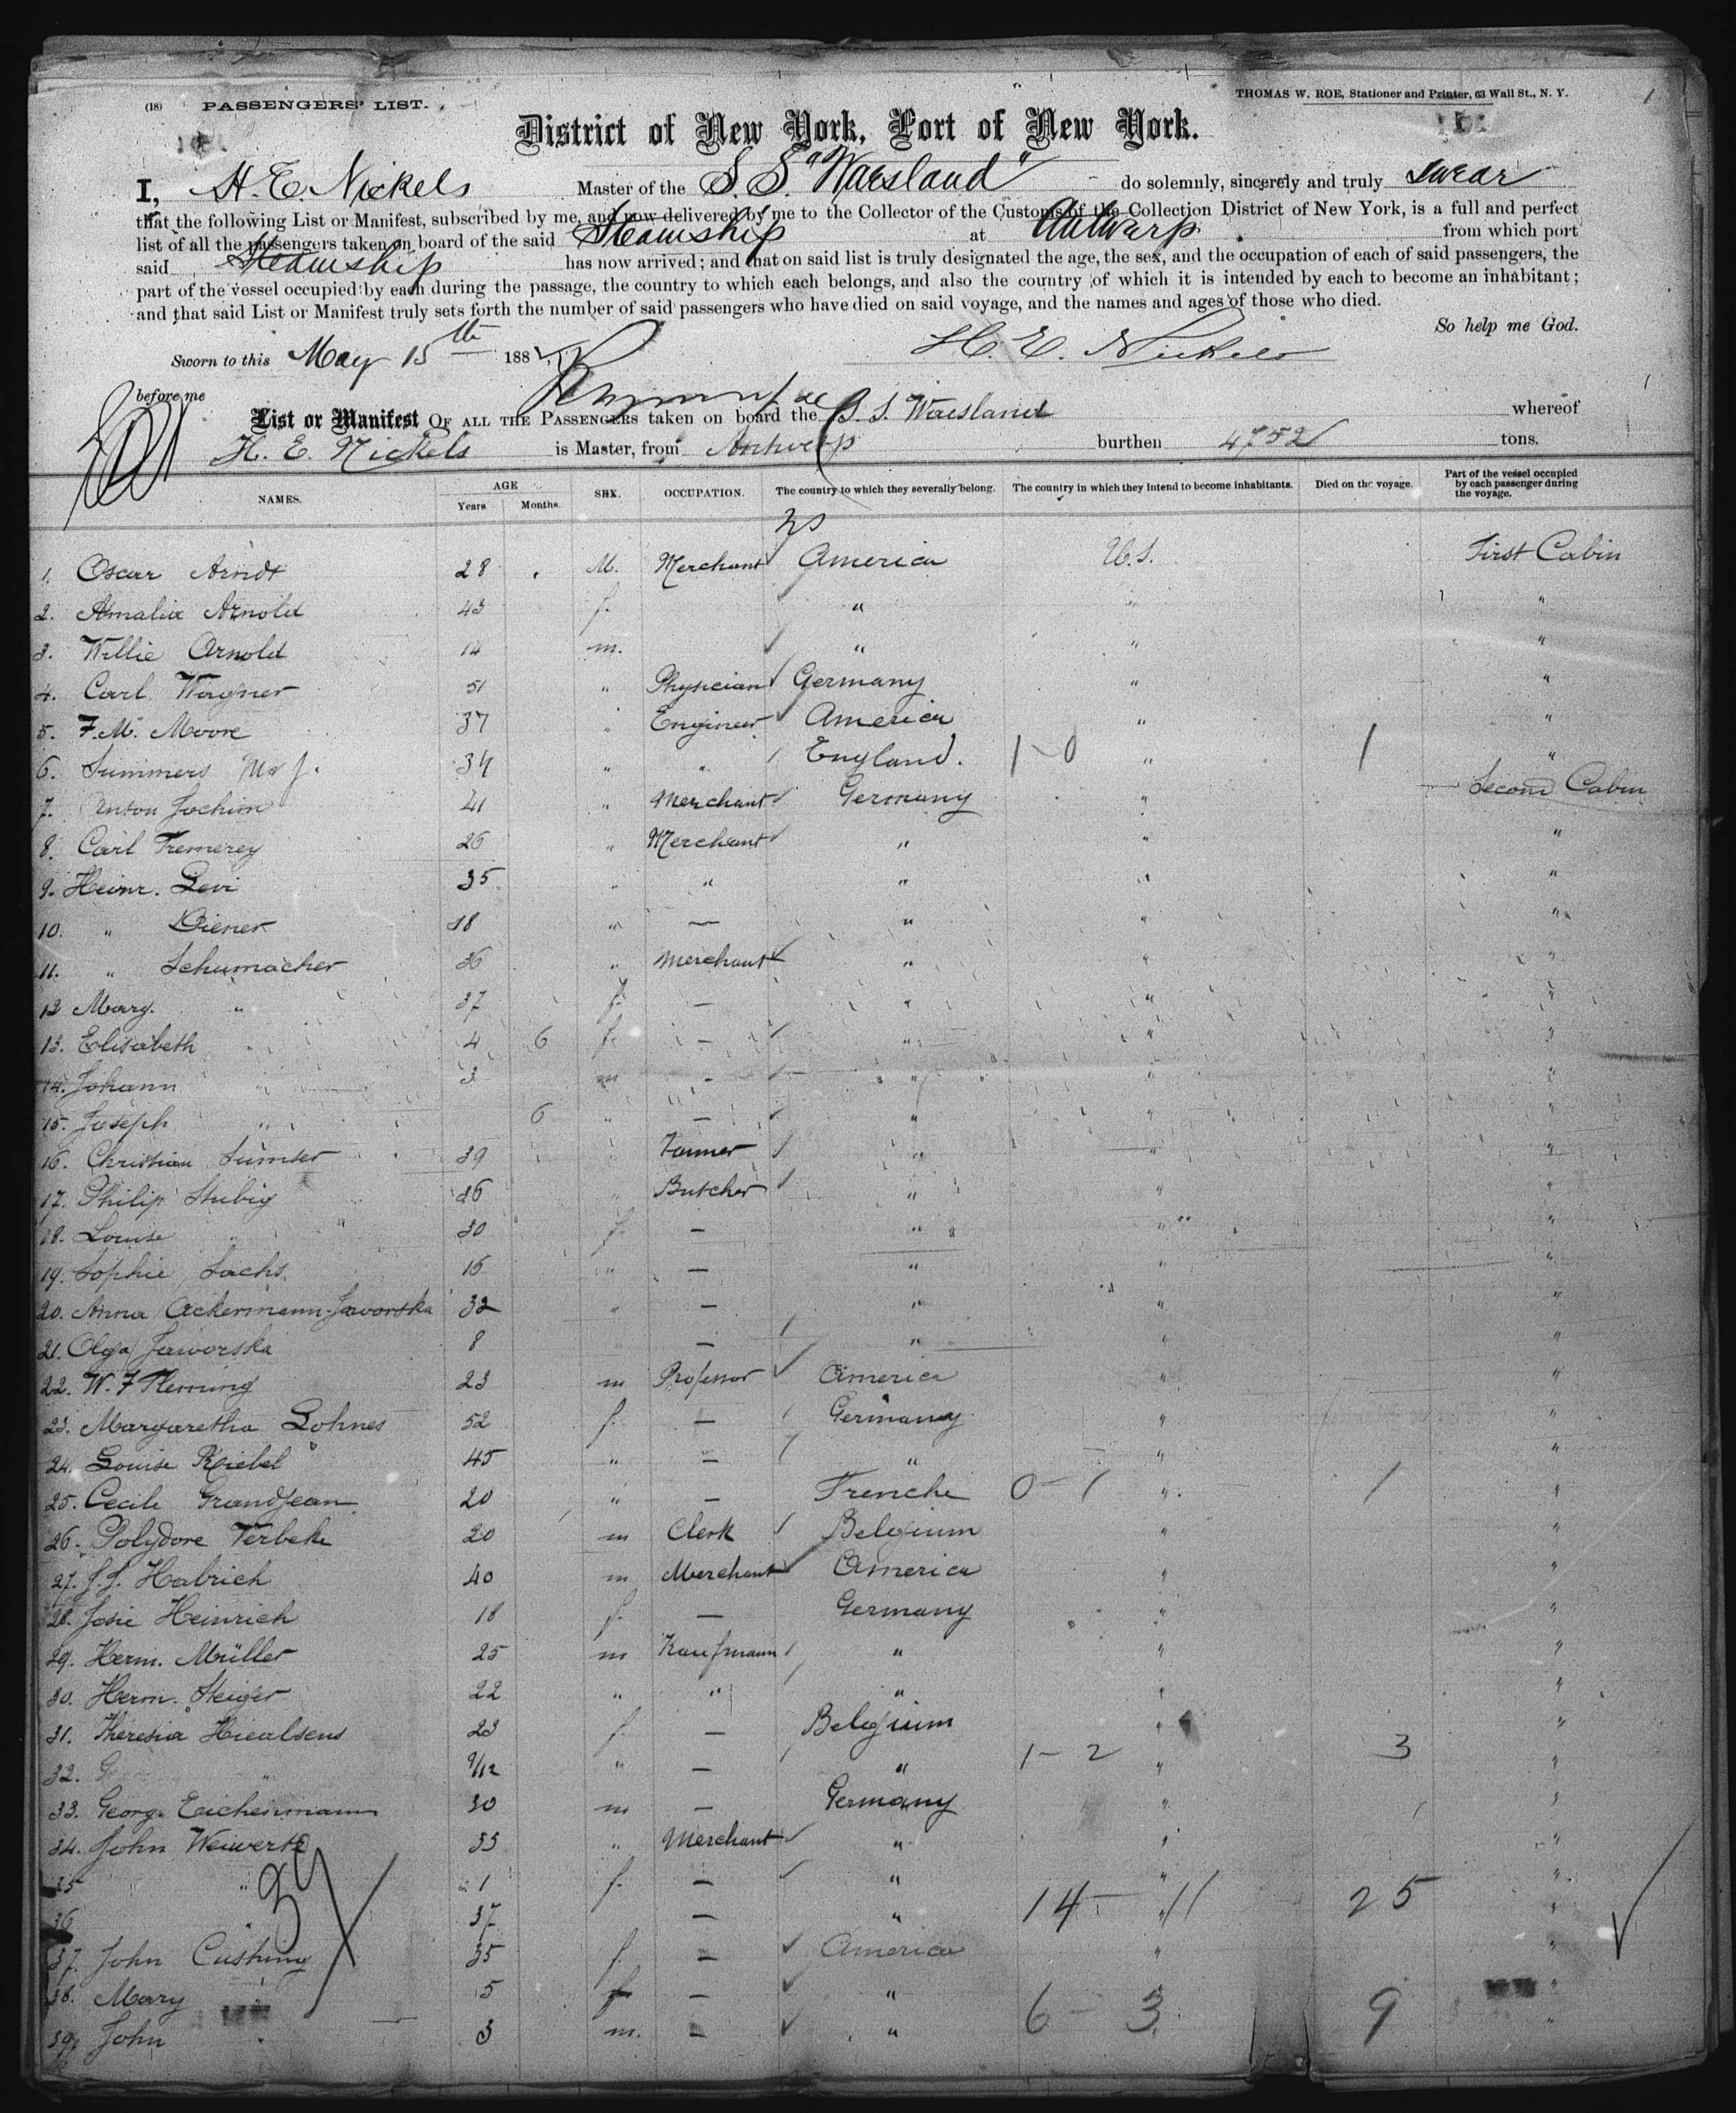 (18) PASSENGERS' LIST.
THOMAS W. ROE, Stationer and Printer, 63 Wall St., N. Y.
1
District of New York, Port of New York.
I, H. E. Nickels Master of the S. S. "Waesland" do solemnly, sincerely and truly swear
that the following List or Manifest, subscribed by me, and now delivered by me to the Collector of the Customs of the Collection District of New York, is a full and perfect
list of all the passengers taken on board of the said Steamship at Antwerp from which port
said Steamship has now arrived; and that on said list is truly designated the age, the sex, and the occupation of each of said passengers, the
part of the vessel occupied by each during the passage, the country to which each belongs, and also the country of which it is intended by each to become an inhabitant;
and that said List or Manifest truly sets forth the number of said passengers who have died on said voyage, and the names and ages of those who died.
So help me God.
Sworn to this May 15th 188 H. E. Nickels
before me
List or Manifest OF ALL THE PASSENGERS taken on board the S. S. Waesland whereof
H. E. Nickels is Master, from Antwerp burthen 4752 tons.
NAMES. AGE Years. Months. SEX. OCCUPATION. The country to which they severally belong. The country in which they intend to become inhabitants. Died on the voyage. Part of the vessel occupied by each passenger during the voyage.
1. Oscar Arndt 28 M. Merchant America U.S. First Cabin
2. Amalia Arnold 43 f. " " "
3. Willie Arnold 14 m. " " "
4. Carl Wagner 51 " Physician Germany " "
5. F. M. Moore 37 " Engineer America " "
6. Summers Mr J. 34 " " England. 1-0 " 1 "
7. Anton Jochim 41 " Merchant Germany " Second Cabin
8. Carl Tremerey 26 " Merchant " " "
9. Heinr. Levi 35 " " " " "
10. " Diener 18 " — " " "
11. " Schumacher 36 " Merchant " " "
12 Mary. " 37 f. — " " "
13. Elisabeth " 4 6 f. — " " "
14. Johann " 3 m - " " "
15. Joseph " 6 " — " " "
16. Christian Sumser 39 " " " "
17. Philip Stubig 36 " Butcher " " "
18. Louise " 30 f. — " " "
19. Sophie Sachs. 16 " — " " "
20. Anna Ackermann-Jaworska 32 " — " " "
21. Olga Jaworska 8 " — " " "
22. W. F Fleming 23 m Professor America " "
23. Margaretha Lohnes 52 f. — Germany " "
24. Louise Kiebel 45 " — " " "
25. Cecile Grandjean 20 " — Frenche 0-1 " 1 "
26. Polydore Verbeke 20 m Clerk Belgium " "
27. J. J. Habrich 40 m Merchant America " "
28. Josie Heinrich 18 f. — Germany " "
29. Herm. Müller 25 m Kaufmann " " "
30. Herm. Steiger 22 " " " " "
31. Theresia 23 f. — Belgium " "
32. " 9/12 " — " 1-2 " 3 "
33. Georg. Eichenmann 30 m — Germany " "
34. John Weiwerts 33 " Merchant " " "
35 " 1 f. — " " "
36 " 37 — " 14- 11 25 "
37. John Cushing 35 f. — America " "
38. Mary " 5 f — " " "
39. John " 3 m. — " 6- 3 9 "
39